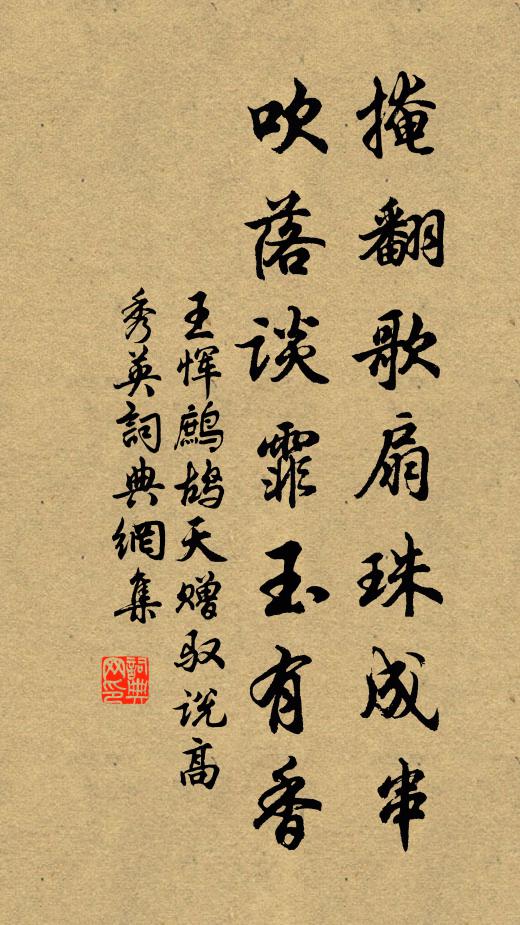 掩翻歌扇珠成串
吹落谈霏玉有香
王恽鹧鸪天赠驭说高
秀英詞典網集
詞典
网印